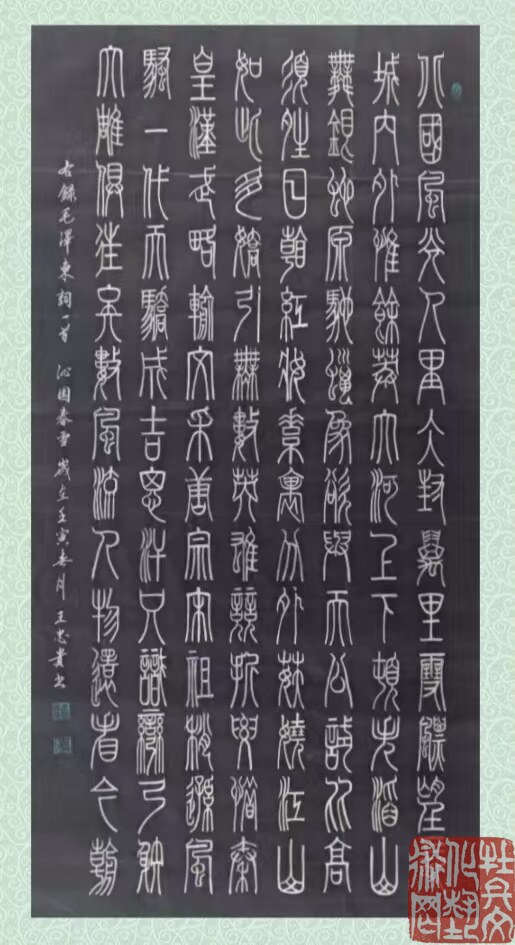 北國風光千里冰封萬里雪飄望
城內外惟餘莽大河上下頓失滔山
舞銀蛇原馳蠟象欲與天公試比高
須晴日看紅妝素裹分外妖嬈江山
如此多嬌引無數英雄競折腰惜秦
皇漢武略輸文采唐宗宋祖稍遜風
騷一代天驕成吉思汗只識彎弓射
大雕俱往矣數風流人物還看今朝
右錄毛澤東詞一首 沁园春雪 歲在壬寅春月 王忠貴书